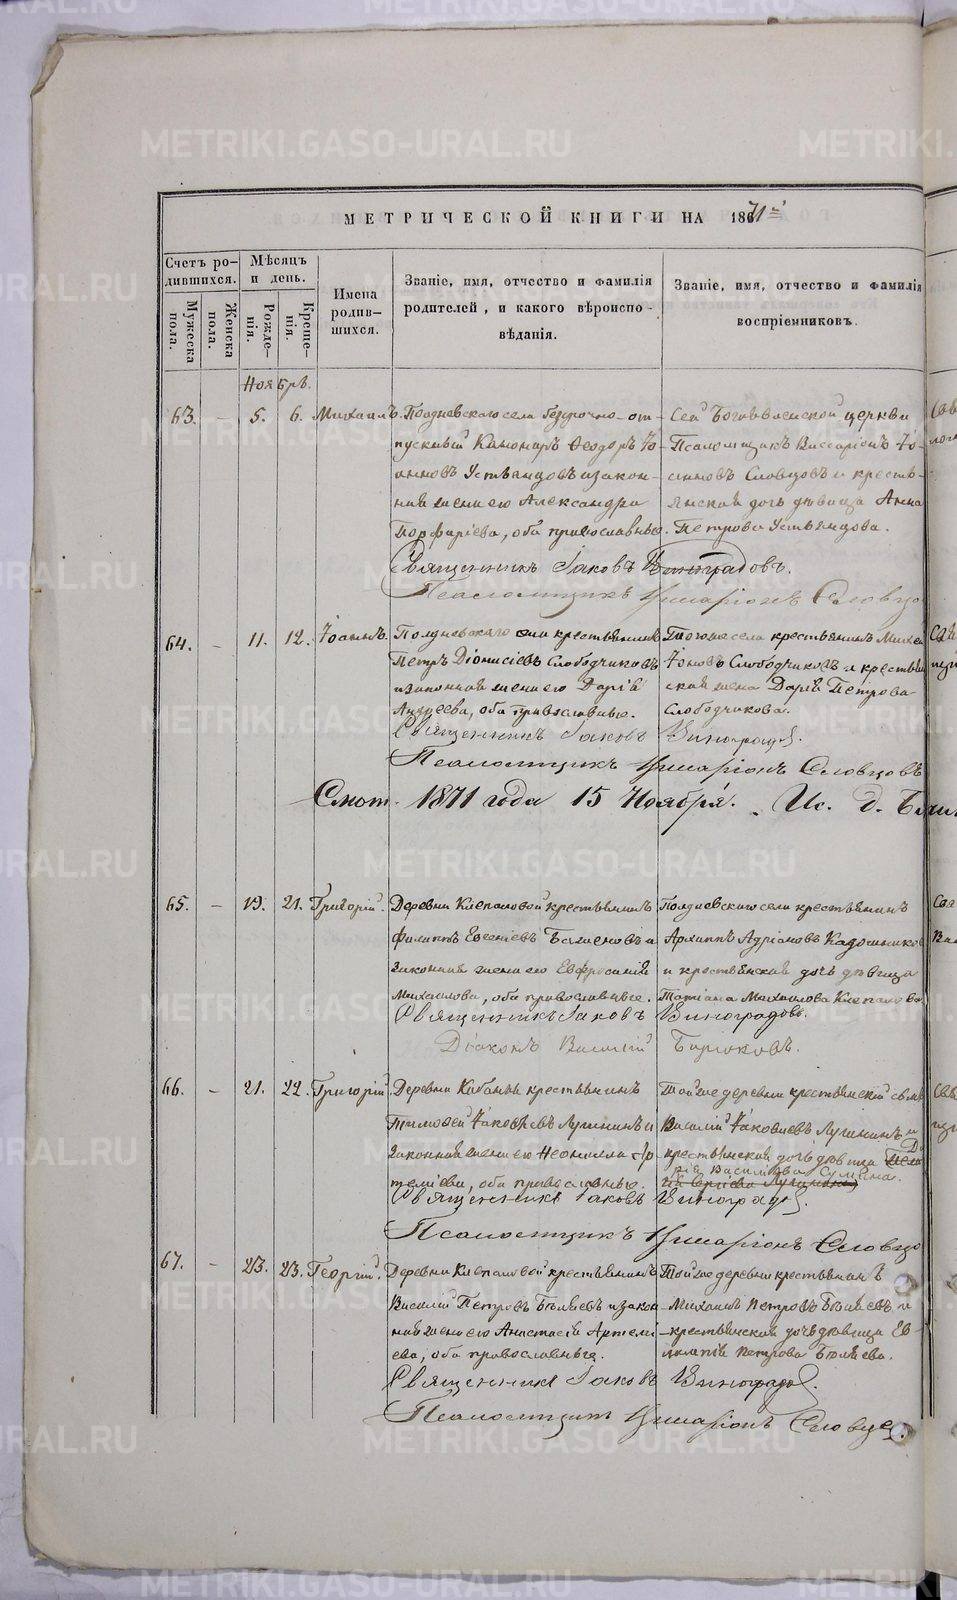 МЕТРИЧЕСКОЙ КНИГИ НА 1871й
Счетъ ро-
дившихся.
Мѣсяцъ
и день.
Имена
родив-
шихся.
Званіе, имя, отчество и фамилія
родителей, и какого вѣроиспо-
вѣданія.
Званіе, имя, отчество и фамилія
воспріемниковъ.
Мужеска
пола.
Женска
пола.
Рожде-
нія.
Креще-
нія.
Ноябрь.
63. - 5. 6. Михаилъ.
Полдневскаго села безсрочно-от-
пускный Канониръ Ѳеодоръ Іо-
анновъ Устьянцовъ и закон-
ная жена его Александра
Порфиріева, оба православные.
Сей Богоявленской церкви
Псаломщикъ Виссаріонъ Іо-
анновъ Словцовъ и кресть-
янская дочь дѣвица Анна
Петрова Устьянцова.
Священникъ Іаковъ Виноградовъ.
Псаломщикъ Иларіонъ Словцо
64. - 11. 12. Іоаннъ.
Полдневскаго села крестьянинъ
Петръ Діонисіевъ Слободчиковъ
и законная жена его Дарія
Андреева, оба православные.
Тогоже села крестьянинъ Михеи
Іоновъ Слободчиковъ и крестьян
ская жена Дарія Петрова
Слободчикова.
Священникъ Іаковъ Виноградов.
Псаломщикъ Иларіонъ Словцовъ
Смот. 1871 года 15 Ноября. Ис. д. Бла
65. - 19. 21. Григорій.
Деревни Клепаловой крестьянинъ
Филиппъ Евгеніевъ Баженовъ и
законная жена его Евфросинія
Михаилова, оба православные.
Полдневскаго села крестьянинъ
Архиппъ Адріановъ Кадошников
и крестьянская дочь дѣвица
Татіана Михаилова Клепалова
Священникъ Іаковъ Виноградовъ.
Діаконъ Василій Бирюковъ.
66. - 21. 22. Григорій.
Деревни Кабаньи крестьянинъ
Тимоѳей Іаковлевъ Лучининъ и
законная жена его Неонилла Ар-
теміева, оба православные.
Тойже деревни крестьянскій сынъ
Василій Іаковлевъ Лучининъ и
крестьянская дочь дѣвица Да
рія Василіева Сумина.
Священникъ Іаковъ Виноградов.
Псаломщикъ Иларіонъ Словцо
67. - 23. 23. Георгій.
Деревни Клепаловой крестьянинъ
Василій Петровъ Бѣляевъ и закон
ная жена его Анастасія Артемі-
ева, оба православные.
Тойже деревни крестьянинъ
Михаилъ Петровъ Бѣляевъ и
крестьянская дочь дѣвица Ев-
лампія Петрова Бѣляева.
Священникъ Іаковъ Виноградов.
Псаломщикъ Иларіонъ Словцо
METRIKI.GASO-URAL.RU